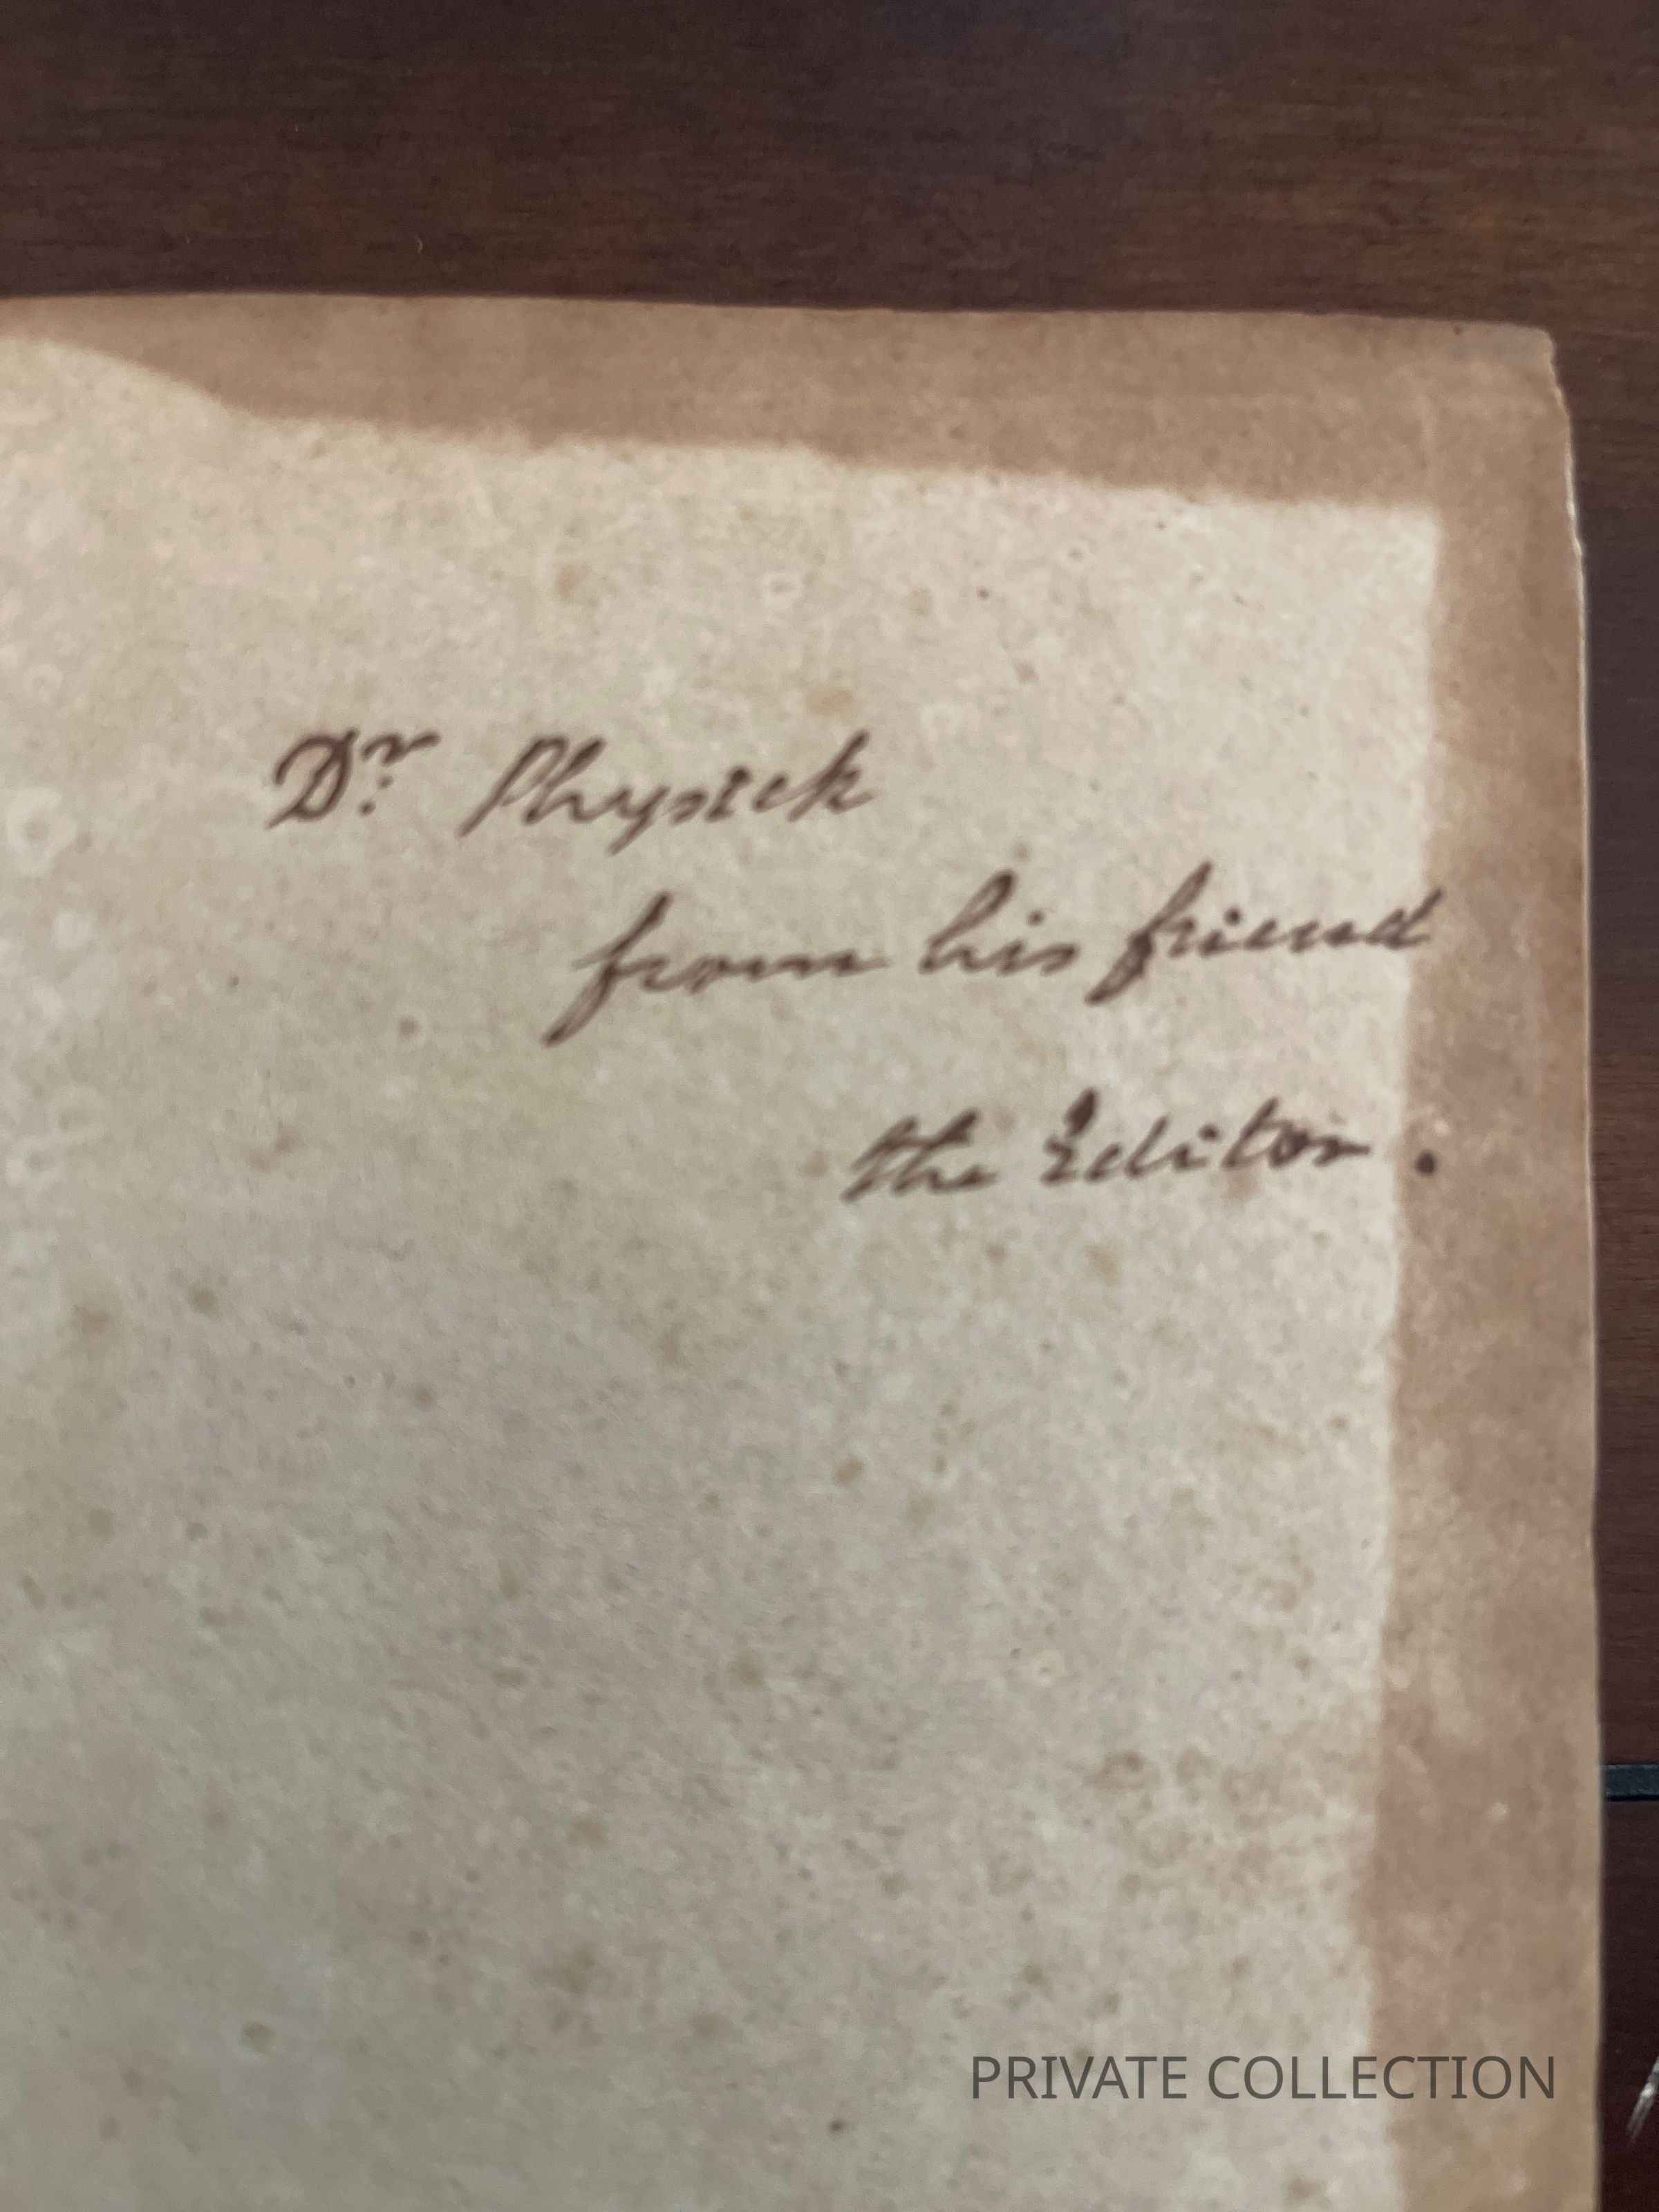 Dr. Physick
from his friend
the Editor.
PRIVATE COLLECTION